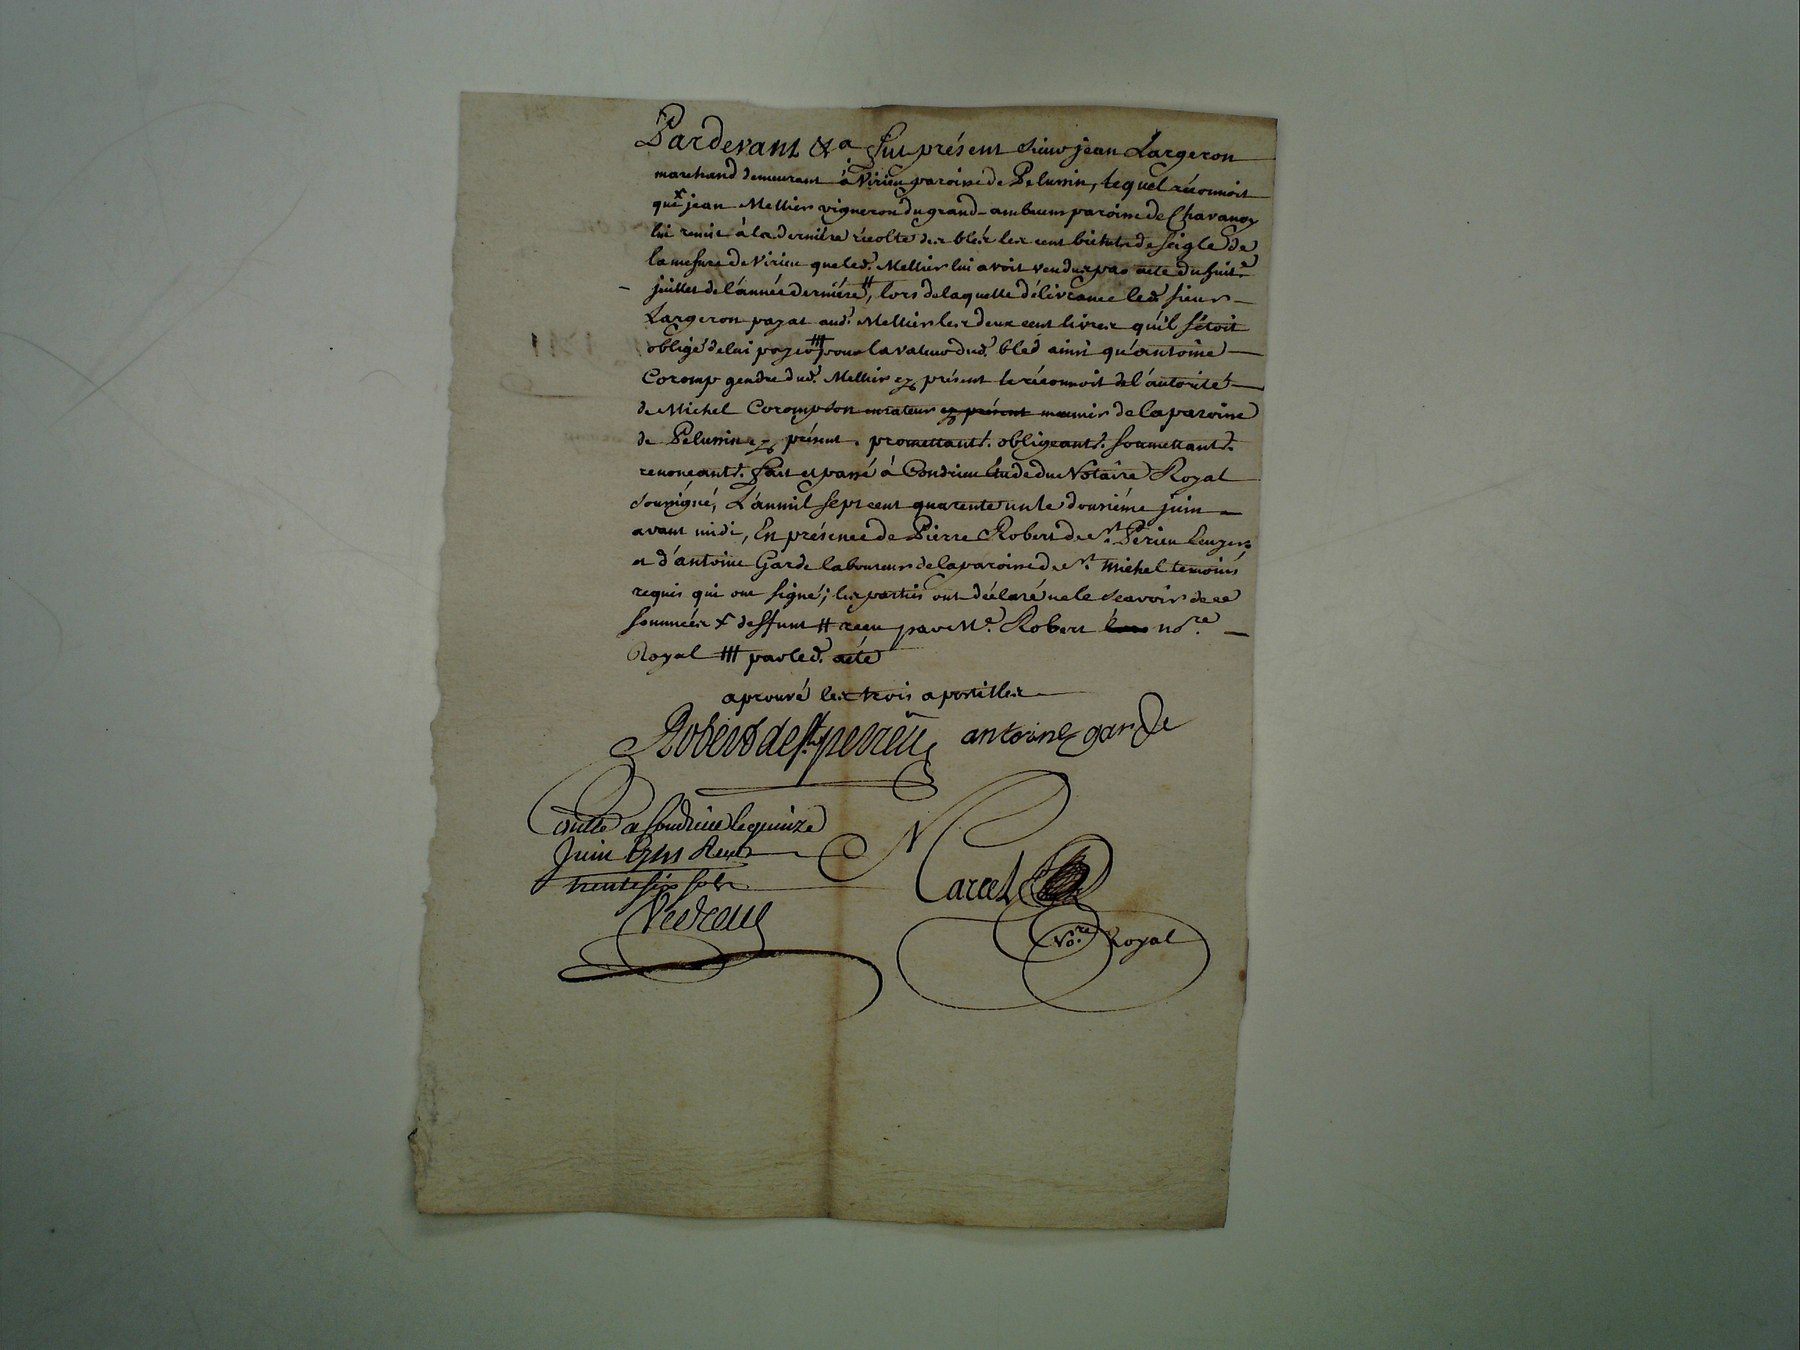 Pardevant &a fut présent sieur jean Largeron
marchand demeurant à Virieu paroisse de Pelussin, lequel réconnoit
que x jean Mellier vigneron du grand ambeum paroisse de Chavanay
lui remit à la derniere récolte des bleds les cent bichets de seigle de
la mesure de Virieu que led. Mellier lui avoit vendus par acte du huit
juillet de l'année derniére #, lors de laquelle délivrance led. sieur
Largeron payat aud. Mellier les deux cent livres qu'il s'étoit
obligé de lui payer ### pour la valeur dud. bled ainsi qu'antoine
Coromp gendre dud. Mellier ez présent le réconnoit de l'autorité
de Michel Corompt son curateur ez présent meunier de la paroisse
de Pelussin ez présent. promettant. obligeant. soumettant.
renonceant. fait et passé à Condrieu Etude du Notaire Royal
soussigné, L'an mil sept cent quarente un le douziéme juin
avant midi, En présence de Pierre Robert de St. Périeu
et d'antoine Garde laboureur de la paroisse de St. Michel temoins
requis qui ont signé; les parties ont déclaré ne le scavoir de ce
sommées x deffunt # receu par Me. Robert nore.
Royal ### par led. acte
aprouvé les trois apostilles
Robert de St perieu antoine garde
Conllé a Condrieu le quinze
Juin 1741 Recu
trente six sols
Marcel
Nore. Royal